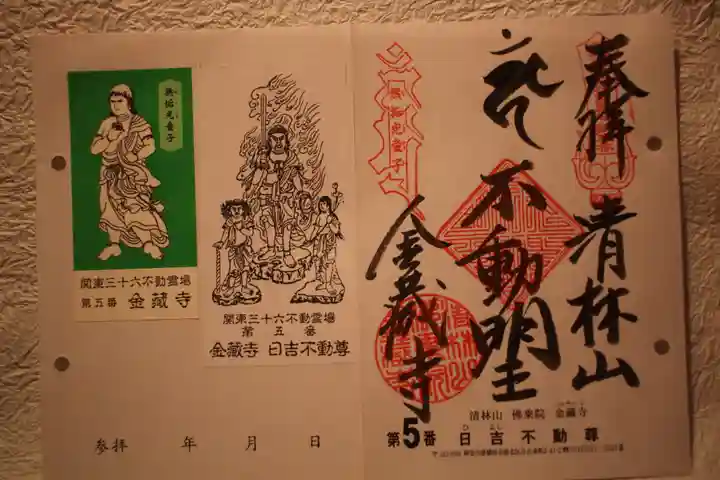 奉拝
清林山
不動明王
金蔵寺
無垢光童子
清林山 佛乗院 金藏寺
第5番 日吉不動尊
ひ よし
無垢光童子
関東三十六不動霊場
第五番 金藏寺
関東三十六不動霊場
第五番
金藏寺 日吉不動尊
参拝 年 月 日